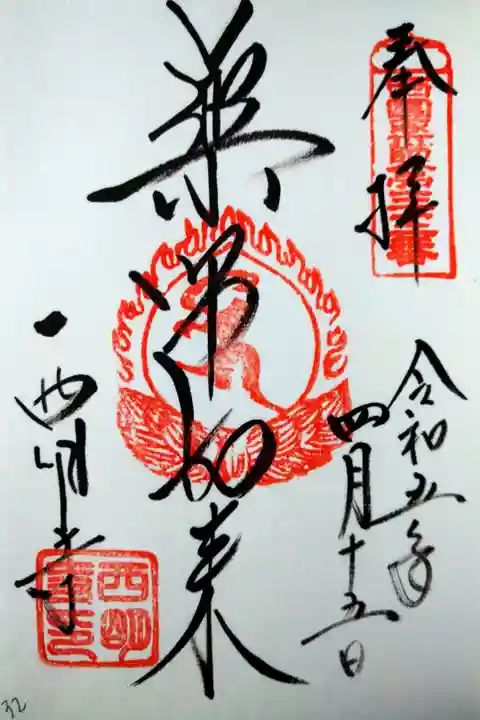 奉拝
令和五年
四月十五日
薬師如来
西明寺
西明
寺
32